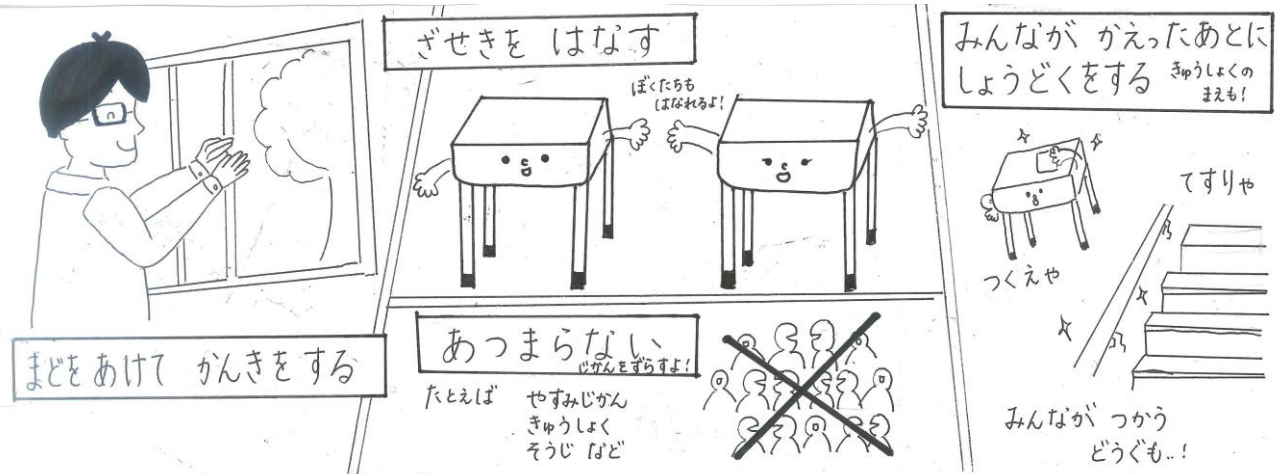 まどをあけて かんきをする
ざせきを はなす
ぼくたちも
はなれるよ!
あつまらない
じかんをずらすよ!
たとえば やすみじかん
きゅうしょく
そうじ など
みんなが かえったあとに
しょうどくをする
きゅうしょくの
まえも!
つくえや
てすりや
みんなが つかう
どうぐも..!